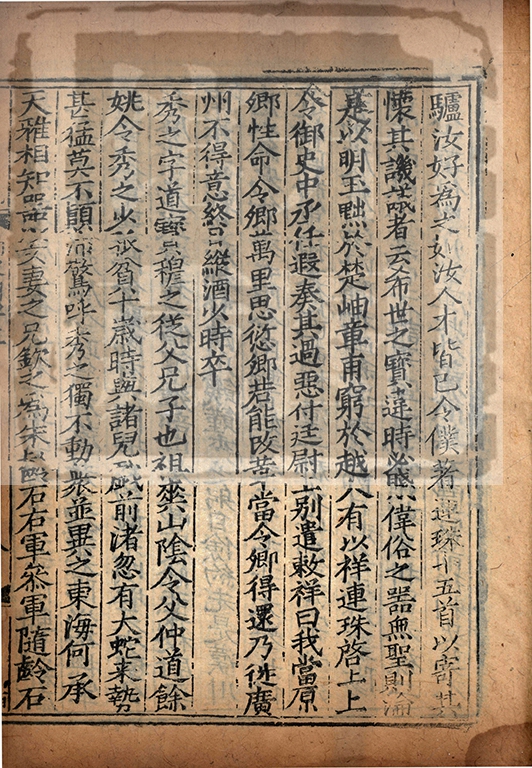 驢汝好為之如汝人才皆已令僕著連珠十五首以寄其
懷其譏議者云希世之寶違時必賤偉俗之器無聖則淪
是以明玉黜於楚岫章甫窮於越人有以祥連珠啓上上
令御史中丞任遐奏其過惡付廷尉上別遣敕祥曰我當原
卿性命令卿萬里思愆卿若能改革當令卿得還乃徙廣
州不得意終日縱酒少時卒
秀之字道寶穆之從父兄子也祖爽山陰令父仲道餘
姚令秀之少孤貧十歲時與諸兒戲前渚忽有大蛇来勢
甚猛莫不顛沛驚呼秀之獨不動衆並異之東海何承
天雅相知器以女妻之兄欽之為朱齡石右軍參軍隨齡石